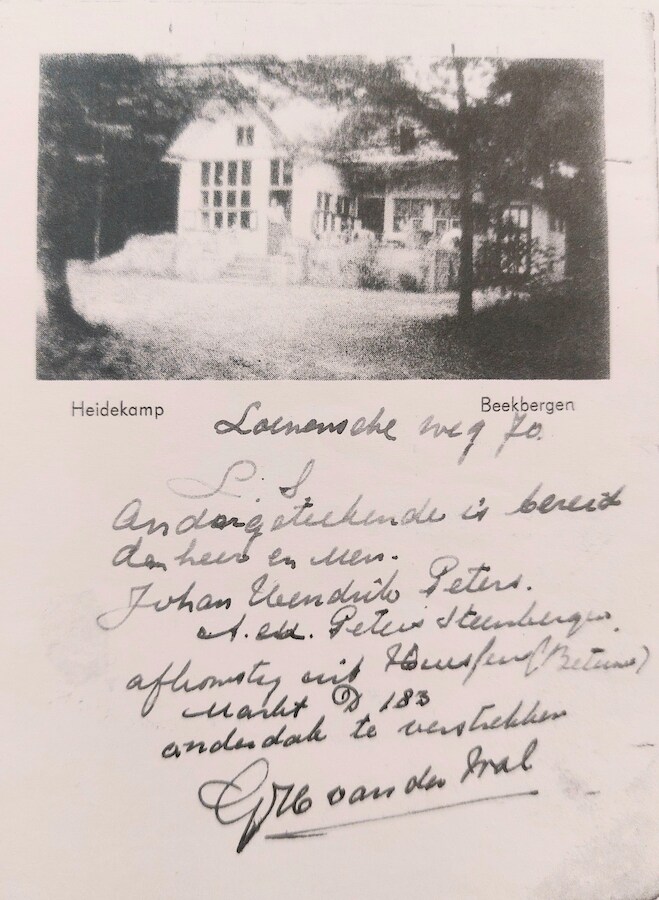 Heidekamp
Beekbergen
Loenensche weg 70.
L. S.
Ondergeteekende is bereid
den heer en Mevr.
Johan Hendrik Peters.
A. Peters Steenbergen
afkomstig uit Huissen (Betuwe)
Markt D 183
onderdak te verstrekken
van der Wal